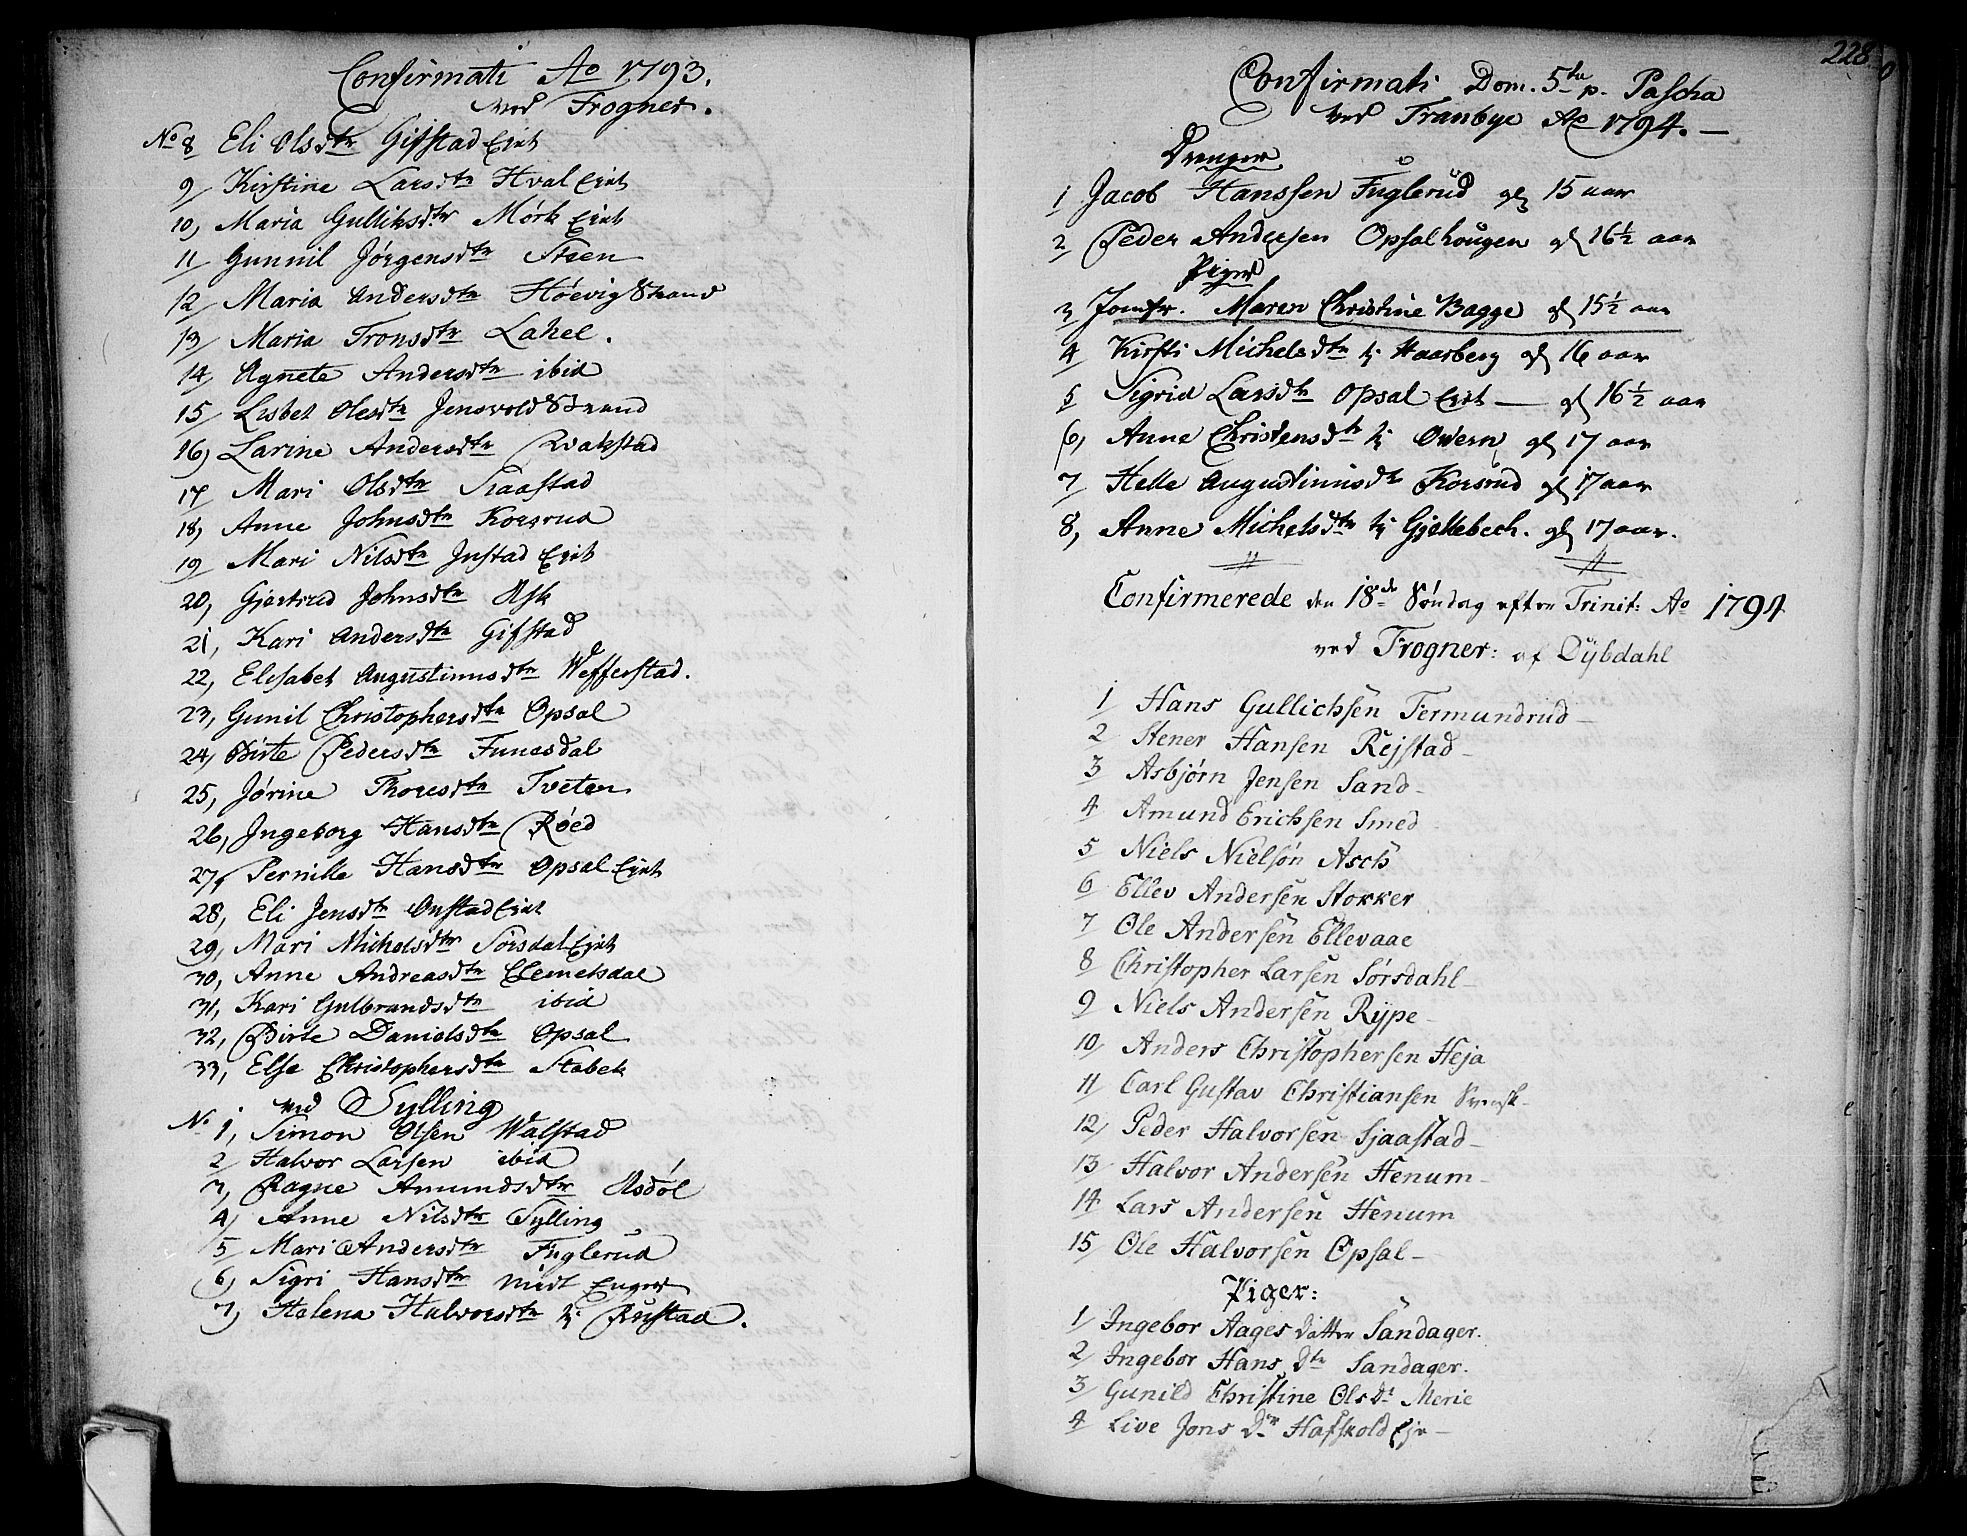 Confirmati Ao 1793.
ved Frogner.
No 8 Eli Olsdtr Gifstad Eiet
9/ Kirstine Larsdtr Hval Eiet
10, Maria Gulliksdtr Mörk Eiet
11/ Gunnil Jørgensdtr Steen
12/ Maria Andersdtr HöevigStrand
13/ Maria Tronsdtr Lahel.
14/ Agnete Andersdtr ibid
15/ Lisbet Olesdtr JensvoldStrand
16) Larine Andersdtr Wakstad
17 Mari Olsdtr Siaastad
18, Anne Johnsdtr Korsrud
19 Mari Nilsdtr Justad Eiet
20, Gjertrud Johnsdtr Ask
21, Kari Andersdtr Gifstad
22, Elisabet Augustinusdtr Wefferstad.
23, Gunil Christophersdtr Opsal
24, Birte Pedersdtr Funesdal
25, Jørine Thoresdtr Tveten
26, Ingeborg Hansdtr Röed
27, Pernille Hansdtr Opsal Eiet
28, Eli Jensdtr Onstad Eiet
29, Mari Michelsdtr Sörsdal Eiet
30, Anne Andreasdtr Clemetsdal
31, Kari Gulbrandsdtr ibid
32, Birte Danielsdtr Opsal
33, Else Christophersdtr Stabek
ved Sylling
No 1, Simon Olsen Walstad
2/ Halvor Larsen ibid
3, Ragne Amundsdtr Asdöl
4) Anne Nilsdtr Sylling
5 Mari Andersdtr Fuglerud
6) Sigri Hansdtr midt Enger
7) Helena Halvorsdtr Rustad.
228
Confirmati Dom. 5ta p. Pascha
ved Tranbye Ao 1794.—
Drenger
1 Jacob Hanssen Fuglerud gl 15 aar
2 Peder Andersen Opsalhougen gl 16½ aar
Piger
3 Jomfr. Maren Christine Bagge gl 15½ aar
4 Kirsti Michelsdtr Haarberg gl 16 aar
5 Sigrid Larsdtr Opsal Eiet — gl 16½ aar
6, Anne Christensdtr Qwern gl 17 aar
7 Helle Augustinusdtr Korsrud gl 17 aar
8, Anne Michelsdtr Gjellebech. gl 17 aar.
Confirmerede den 18de Söndag efter Trinit: Ao 1794
ved Frogner: af Dybdahl
1 Hans Gullichsen Termundrud—
2 Stener Hansen Rejstad—
3 Asbjörn Jensen Sand—
4 Amund Erichsen Smed
5 Niels Nielsön Asch
6 Ellev Andersen Stokker
7 Ole Andersen Ellevaae
8 Christopher Larsen Sörsdahl—
9 Niels Andersen Rype—
10/ Anders Christophersen Heja
11/ Carl Gustav Christiansen Svensk—
12/ Peder Halvorsen Sjaastad—
13 Halvor Andersen Henum—
14 Lars Andersen Henum
15/ Ole Halvorsen Opsal—
Piger:
1/ Ingebor Aages datter Sandager.
2/ Ingebor Hans Dtr Sandager.
3/ Gunild Christine Ols Dr Merie
4 Live Jons Dr Hafskold Eje—